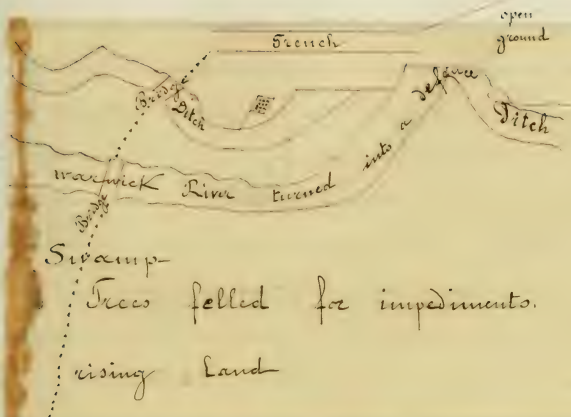 open
ground
Trench
Bridge
Ditch
Ditch
Warwick River turned into a defence
Bridge
Swamp
Trees felled for impediments.
rising Land